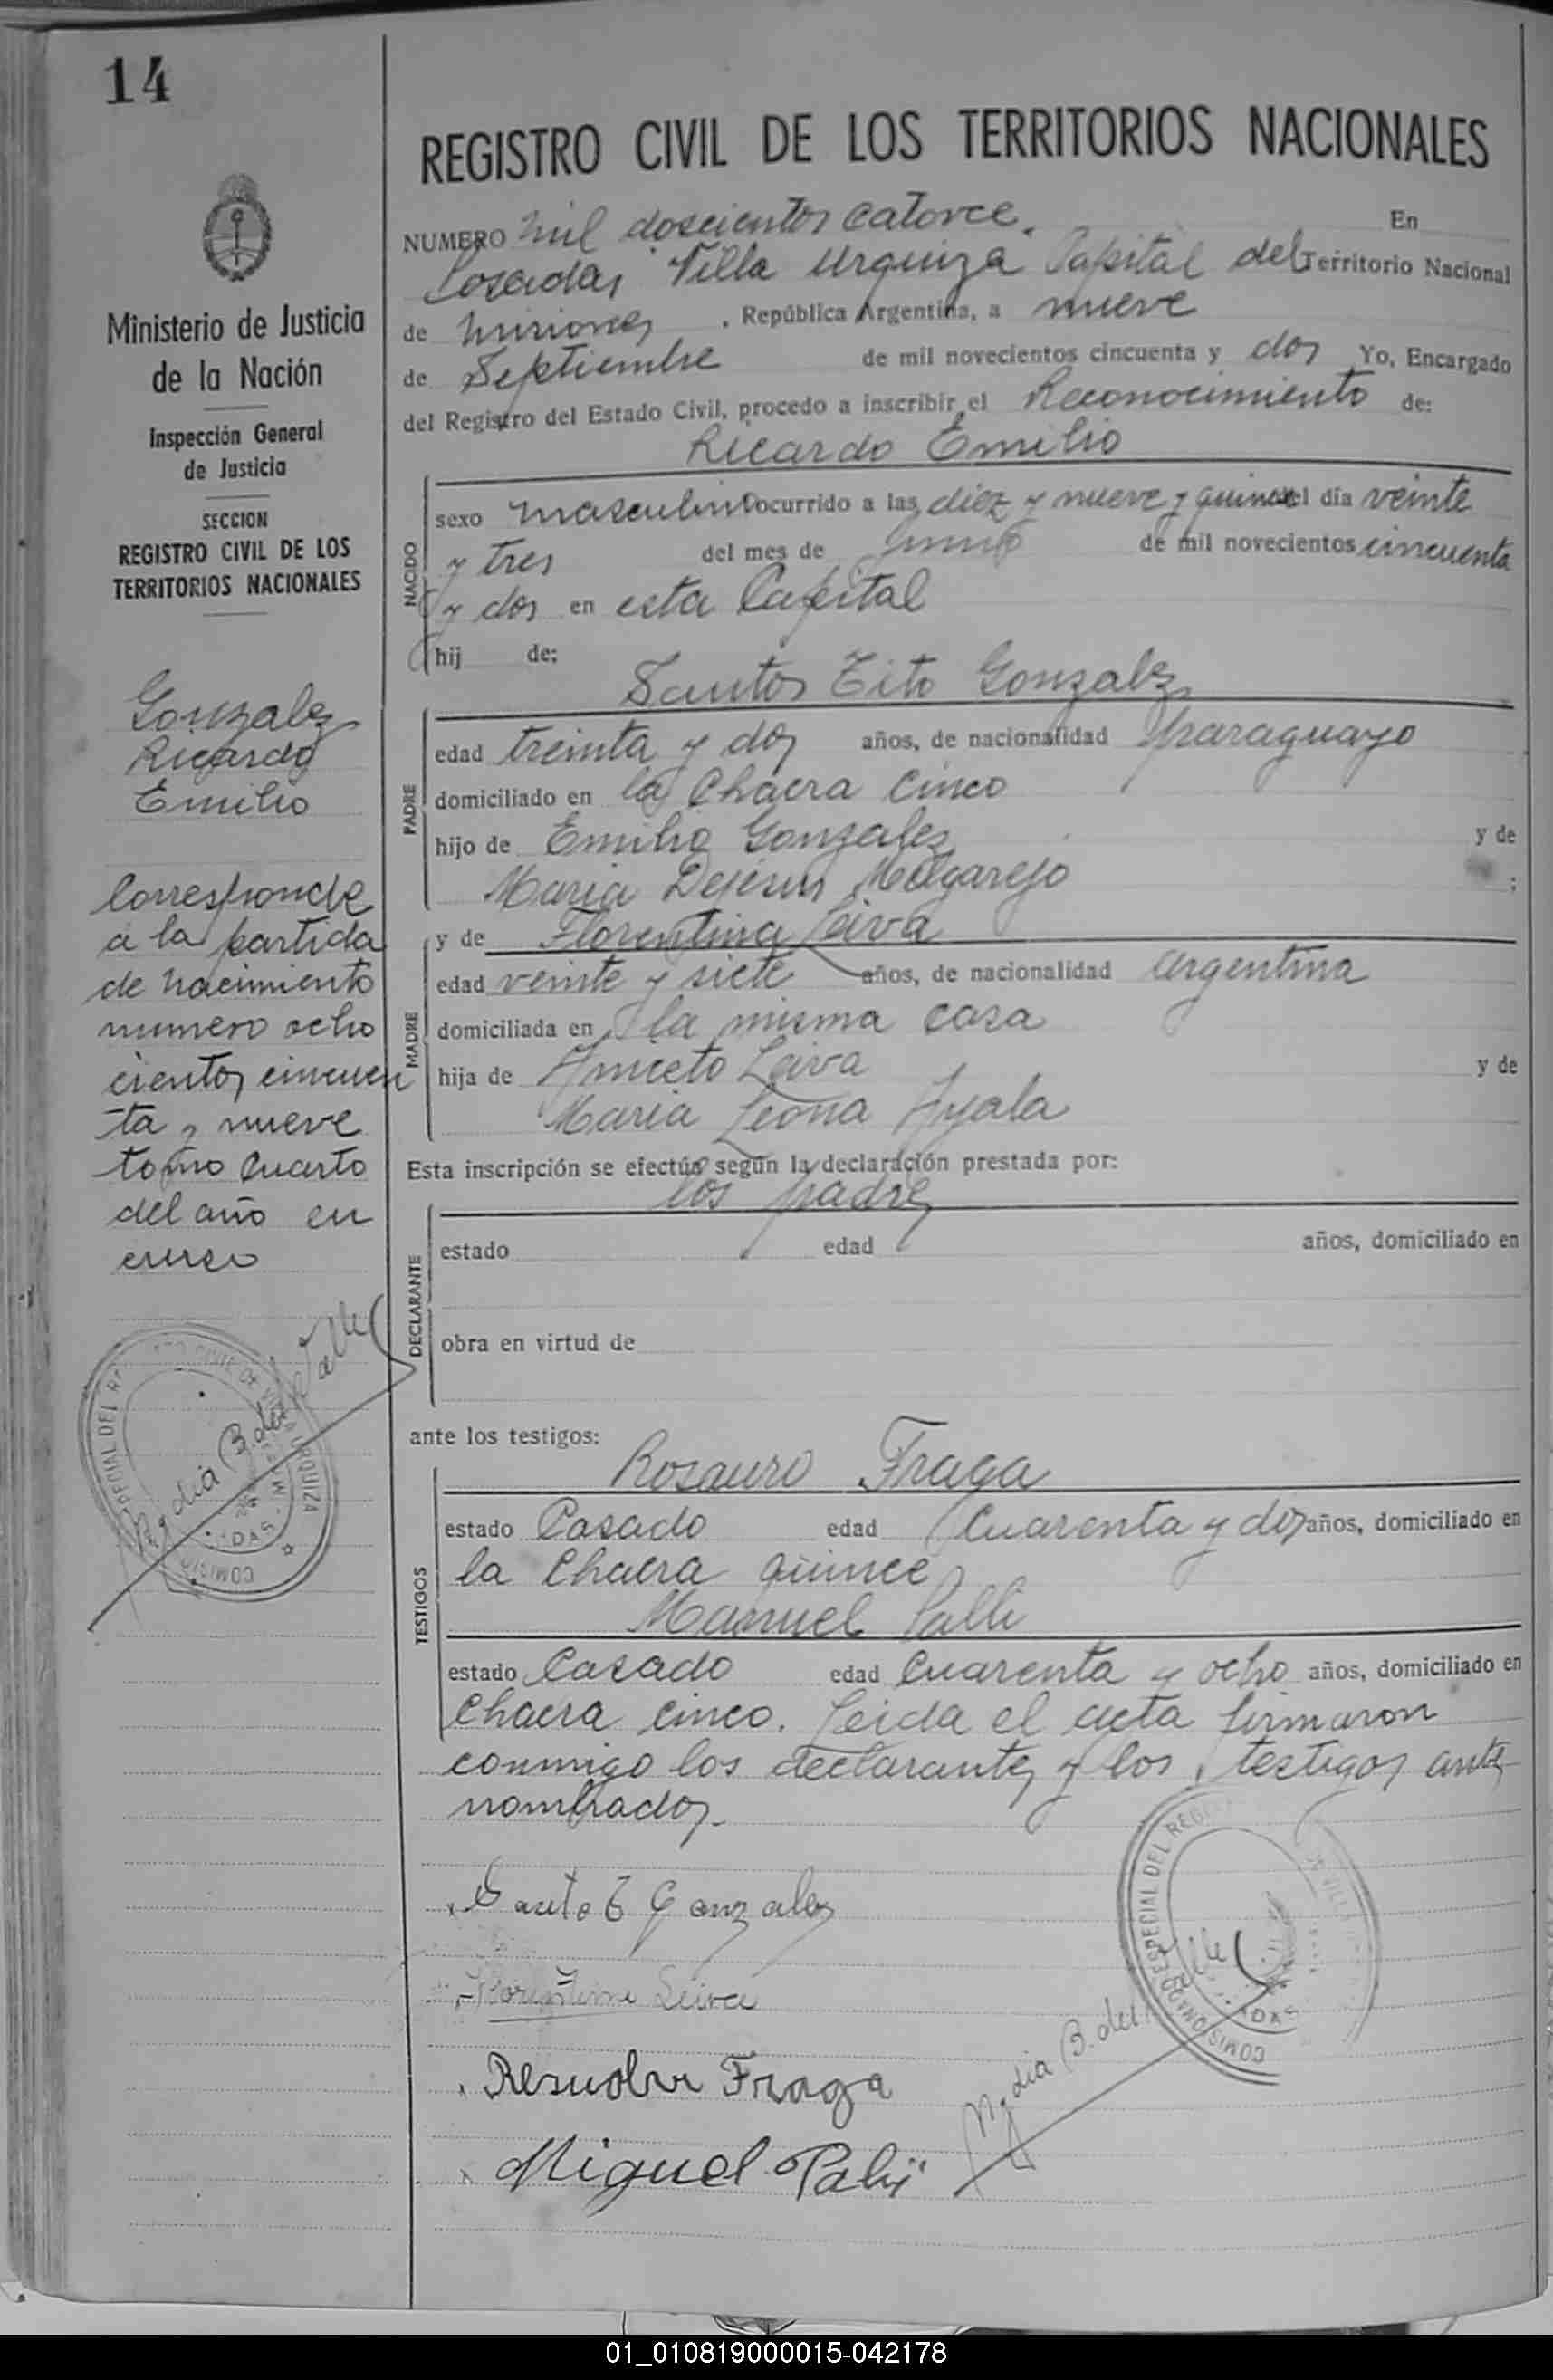 14
Ministerio de Justicia
de la Nación
Inspección General
de Justicia
SECCION
REGISTRO CIVIL DE LOS
TERRITORIOS NACIONALES
Gonzalez
Ricardo
Emilio
Corresponde
a la partida
de nacimiento
numero ocho
cientos cincuen
ta y nueve
tomo cuarto
del año en
curso
REGISTRO CIVIL DE LOS TERRITORIOS NACIONALES
NUMERO Mil doscientos catorce. En
Posadas Villa Urquiza Capital del Territorio Nacional
de Misiones, República Argentina, a nueve
de Septiembre de mil novecientos cincuenta y dos Yo, Encargado
del Registro del Estado Civil, procedo a inscribir el Reconocimiento de:
Ricardo Emilio
NACIDO
sexo masculino ocurrido a las diez y nueve y quince del día veinte
y tres del mes de Junio de mil novecientos cincuenta
y dos en esta Capital
hij de:
Santos Tito Gonzalez
PADRE
edad treinta y dos años, de nacionalidad paraguayo
domiciliado en la Chacra Cinco
hijo de Emilio Gonzalez y de
Maria Dejesus Melgarejo ;
y de Florentina Leiva
MADRE
edad veinte y siete años, de nacionalidad argentina
domiciliada en la misma casa
hija de Aniceto Leiva y de
Maria Leona Ayala
Esta inscripción se efectúa según la declaración prestada por:
los padres
DECLARANTE
estado edad años, domiciliado en
obra en virtud de
ante los testigos:
Rosauro Fraga
TESTIGOS
estado Casado edad Cuarenta y dos años, domiciliado en
la Chacra quince
Manuel Palli
estado Casado edad Cuarenta y ocho años, domiciliado en
Chacra cinco. Leida el acta firmaron
conmigo los declarantes y los testigos ante
nombrados.
Santo T Gonzalez
Florentina Leiva
Fraga
Miguel
01_010819000015-042178